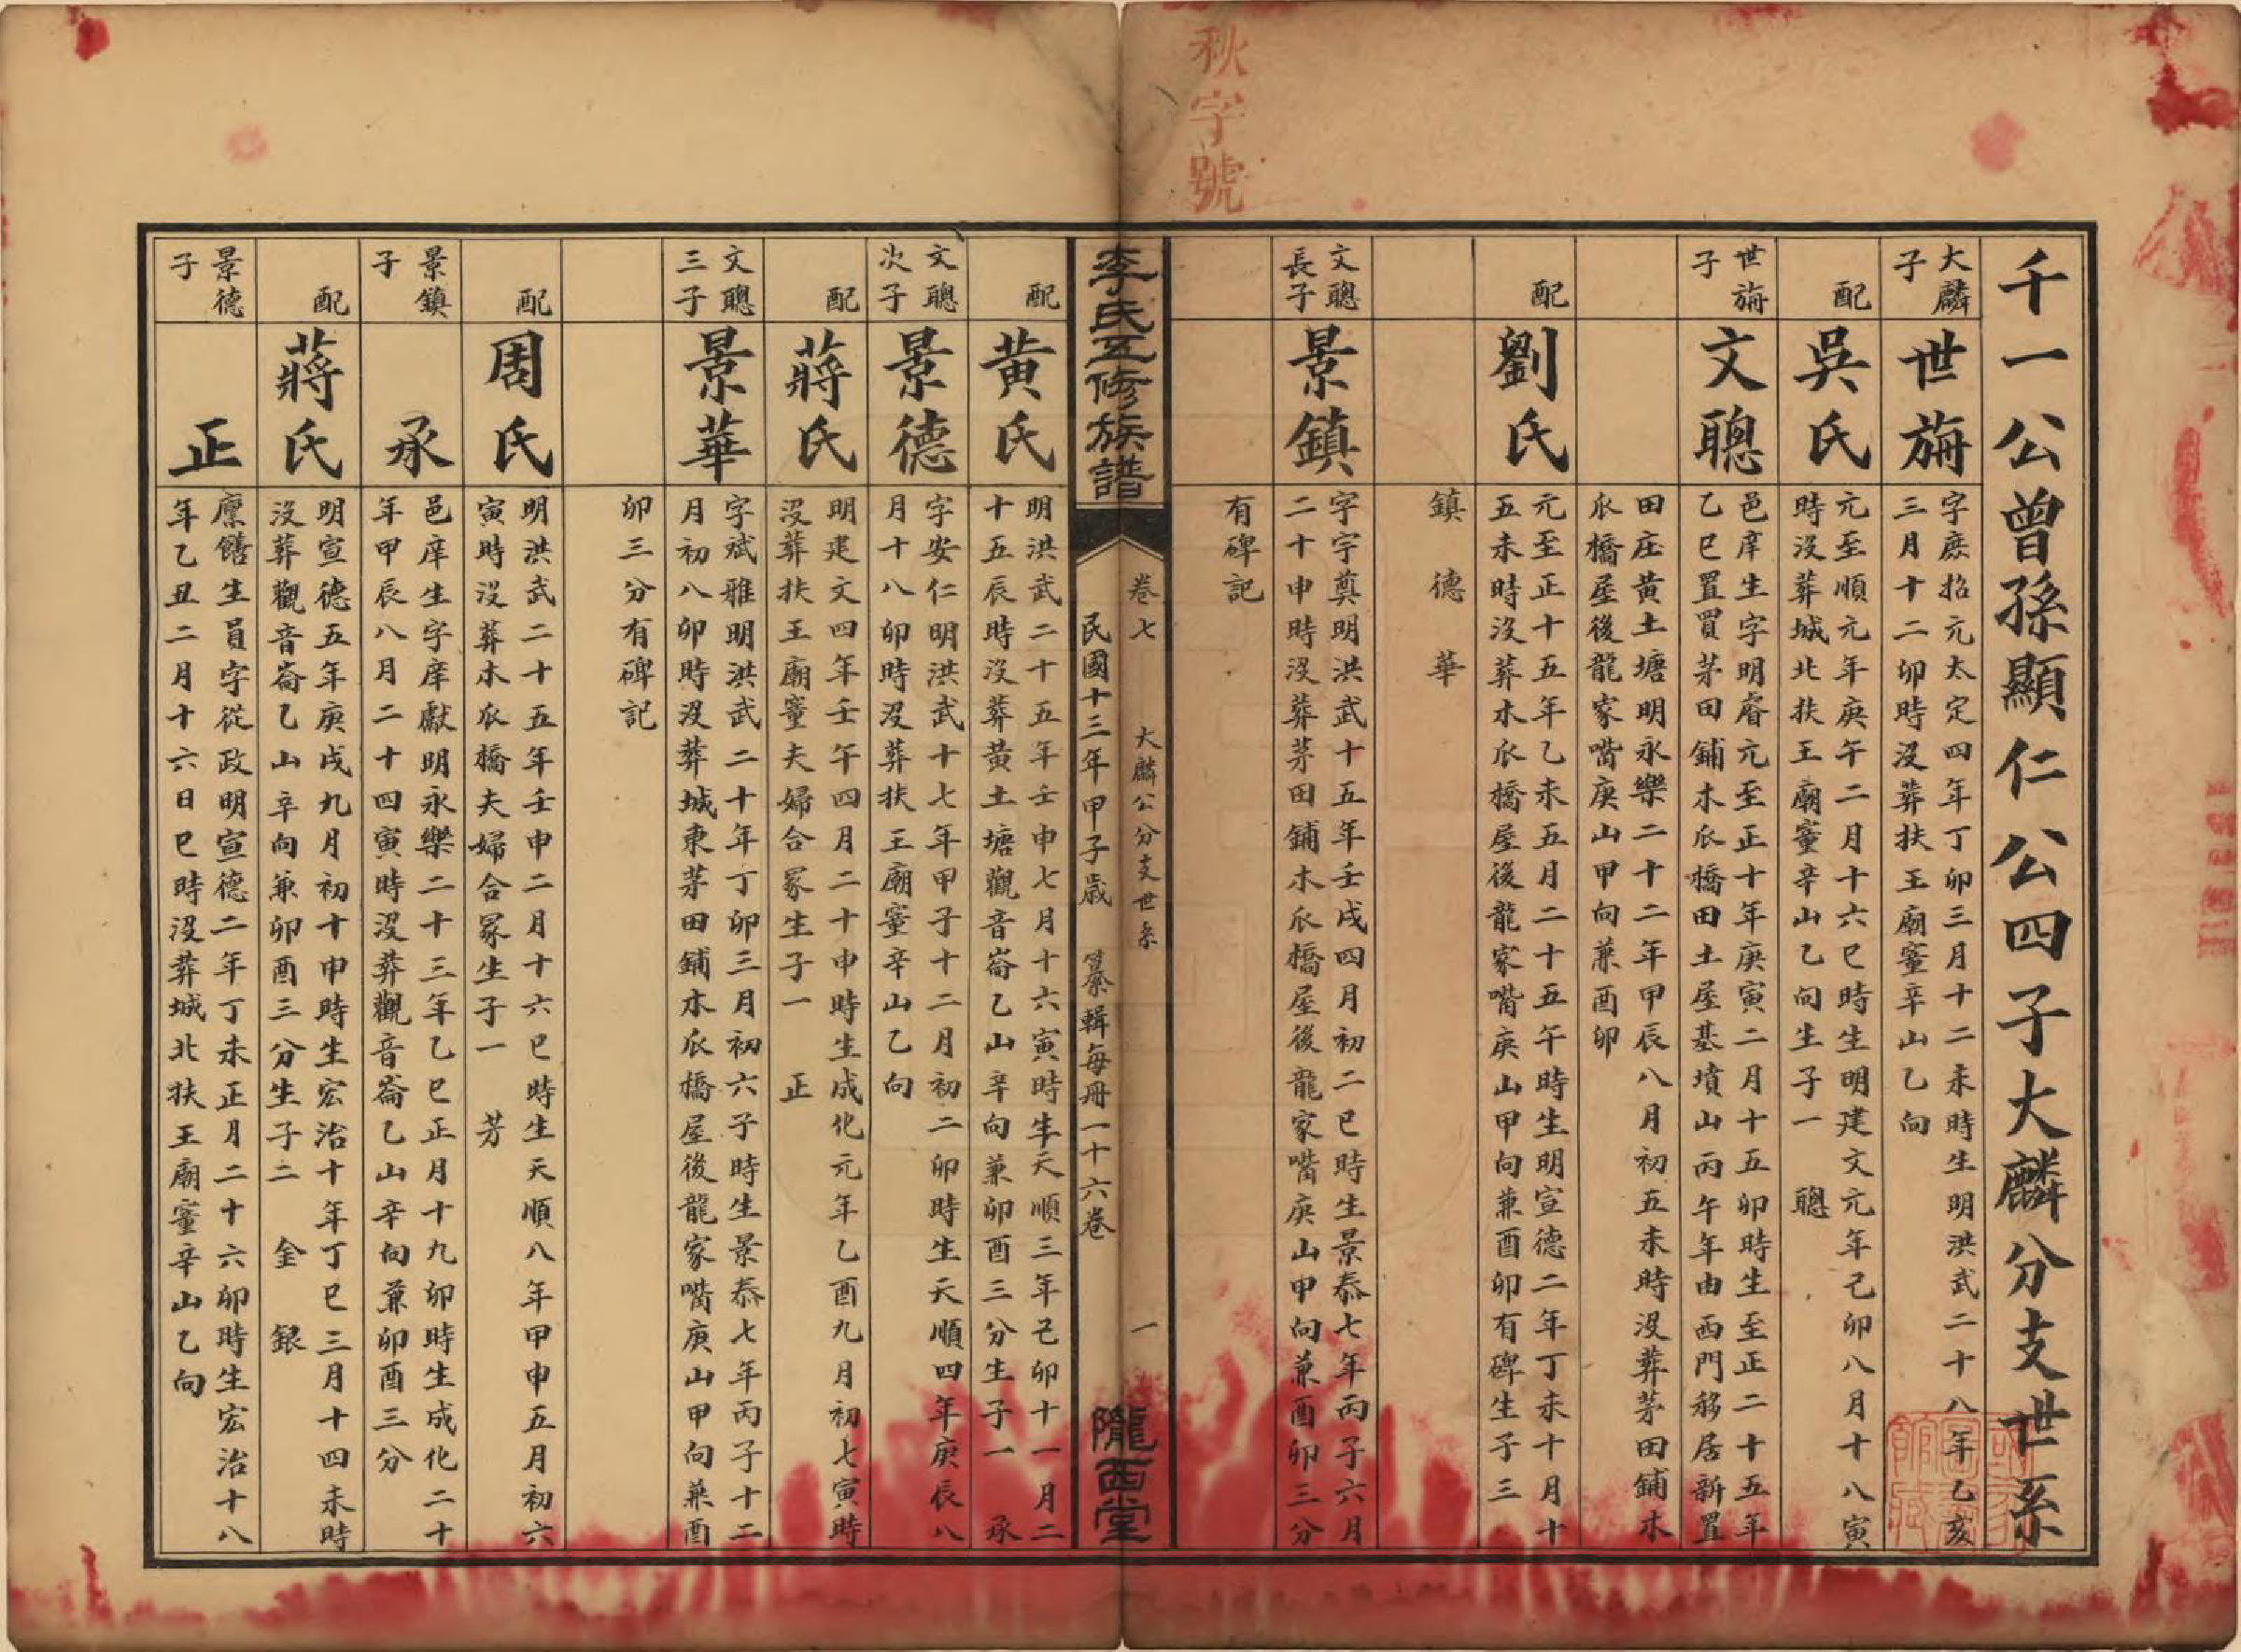 秋字號
千一公曾孫顯仁公四子大麟分支世系
大麟
子
世旃
字庶招元太定四年丁卯三月十二未時生明洪武二十八年乙亥
三月十二卯時沒葬扶王廟塞辛山乙向
配
吳氏
元至順元年庚午二月十六巳時生明建文元年己卯八月十八寅
時沒葬城北扶王廟塞辛山乙向生子一 聰
世旃
子
文聰
邑庠生字明睿元至正十年庚寅二月十五卯時生至正二十五年
乙巳置買茅田鋪木瓜橋田土屋基墳山丙午年由西門移居新置
田庄黄土塘明永樂二十二年甲辰八月初五未時沒葬茅田鋪木
瓜橋屋後龍家嘴庚山甲向兼酉卯
配
劉氏
元至正十五年乙未五月二十五午時生明宣德二年丁未十月十
五未時沒葬木瓜橋屋後龍家嘴庚山甲向兼酉卯有碑生子三
鎮 德 華
文聰
長子
景鎮
字字奠明洪武十五年壬戌四月初二巳時生景泰七年丙子六月
二十申時沒葬茅田鋪木瓜橋屋後龍家嘴庚山甲向兼酉卯三分
有碑記
李氏五修族譜
卷七 大麟公分支世系 一
民國十三年甲子歲 纂輯每冊一十六卷
隴西堂
配
黃氏
明洪武二十五年壬申七月十六寅時生天順三年己卯十一月二
十五辰時沒葬黄土塘觀音崙乙山辛向兼卯酉三分生子一 承
文聰
次子
景德
字安仁明洪武十七年甲子十二月初二卯時生天順四年庚辰八
月十八卯時沒葬扶王廟塞辛山乙向
配
蔣氏
明建文四年壬午四月二十申時生成化元年乙酉九月初七寅時
沒葬扶王廟塞夫婦合冢生子一 正
文聰
三子
景華
字斌雅明洪武二十年丁卯三月初六子時生景泰七年丙子十二
月初八卯時沒葬城東茅田鋪木瓜橋屋後龍家嘴庚山甲向兼酉
卯三分有碑記
配
周氏
明洪武二十五年壬申二月十六巳時生天順八年甲申五月初六
寅時沒葬木瓜橋夫婦合冢生子一 芳
景鎮
子
承
邑庠生字庠獻明永樂二十三年乙巳正月十九卯時生成化二十
年甲辰八月二十四寅時沒葬觀音崙乙山辛向兼卯酉三分
配
蔣氏
明宣德五年庚戌九月初十申時生宏治十年丁巳三月十四未時
沒葬觀音崙乙山辛向兼卯酉三分生子二 金 銀
景德
子
正
廩饍生員字從政明宣德二年丁未正月二十六卯時生宏治十八
年乙丑二月十六日巳時沒葬城北扶王廟塞辛山乙向